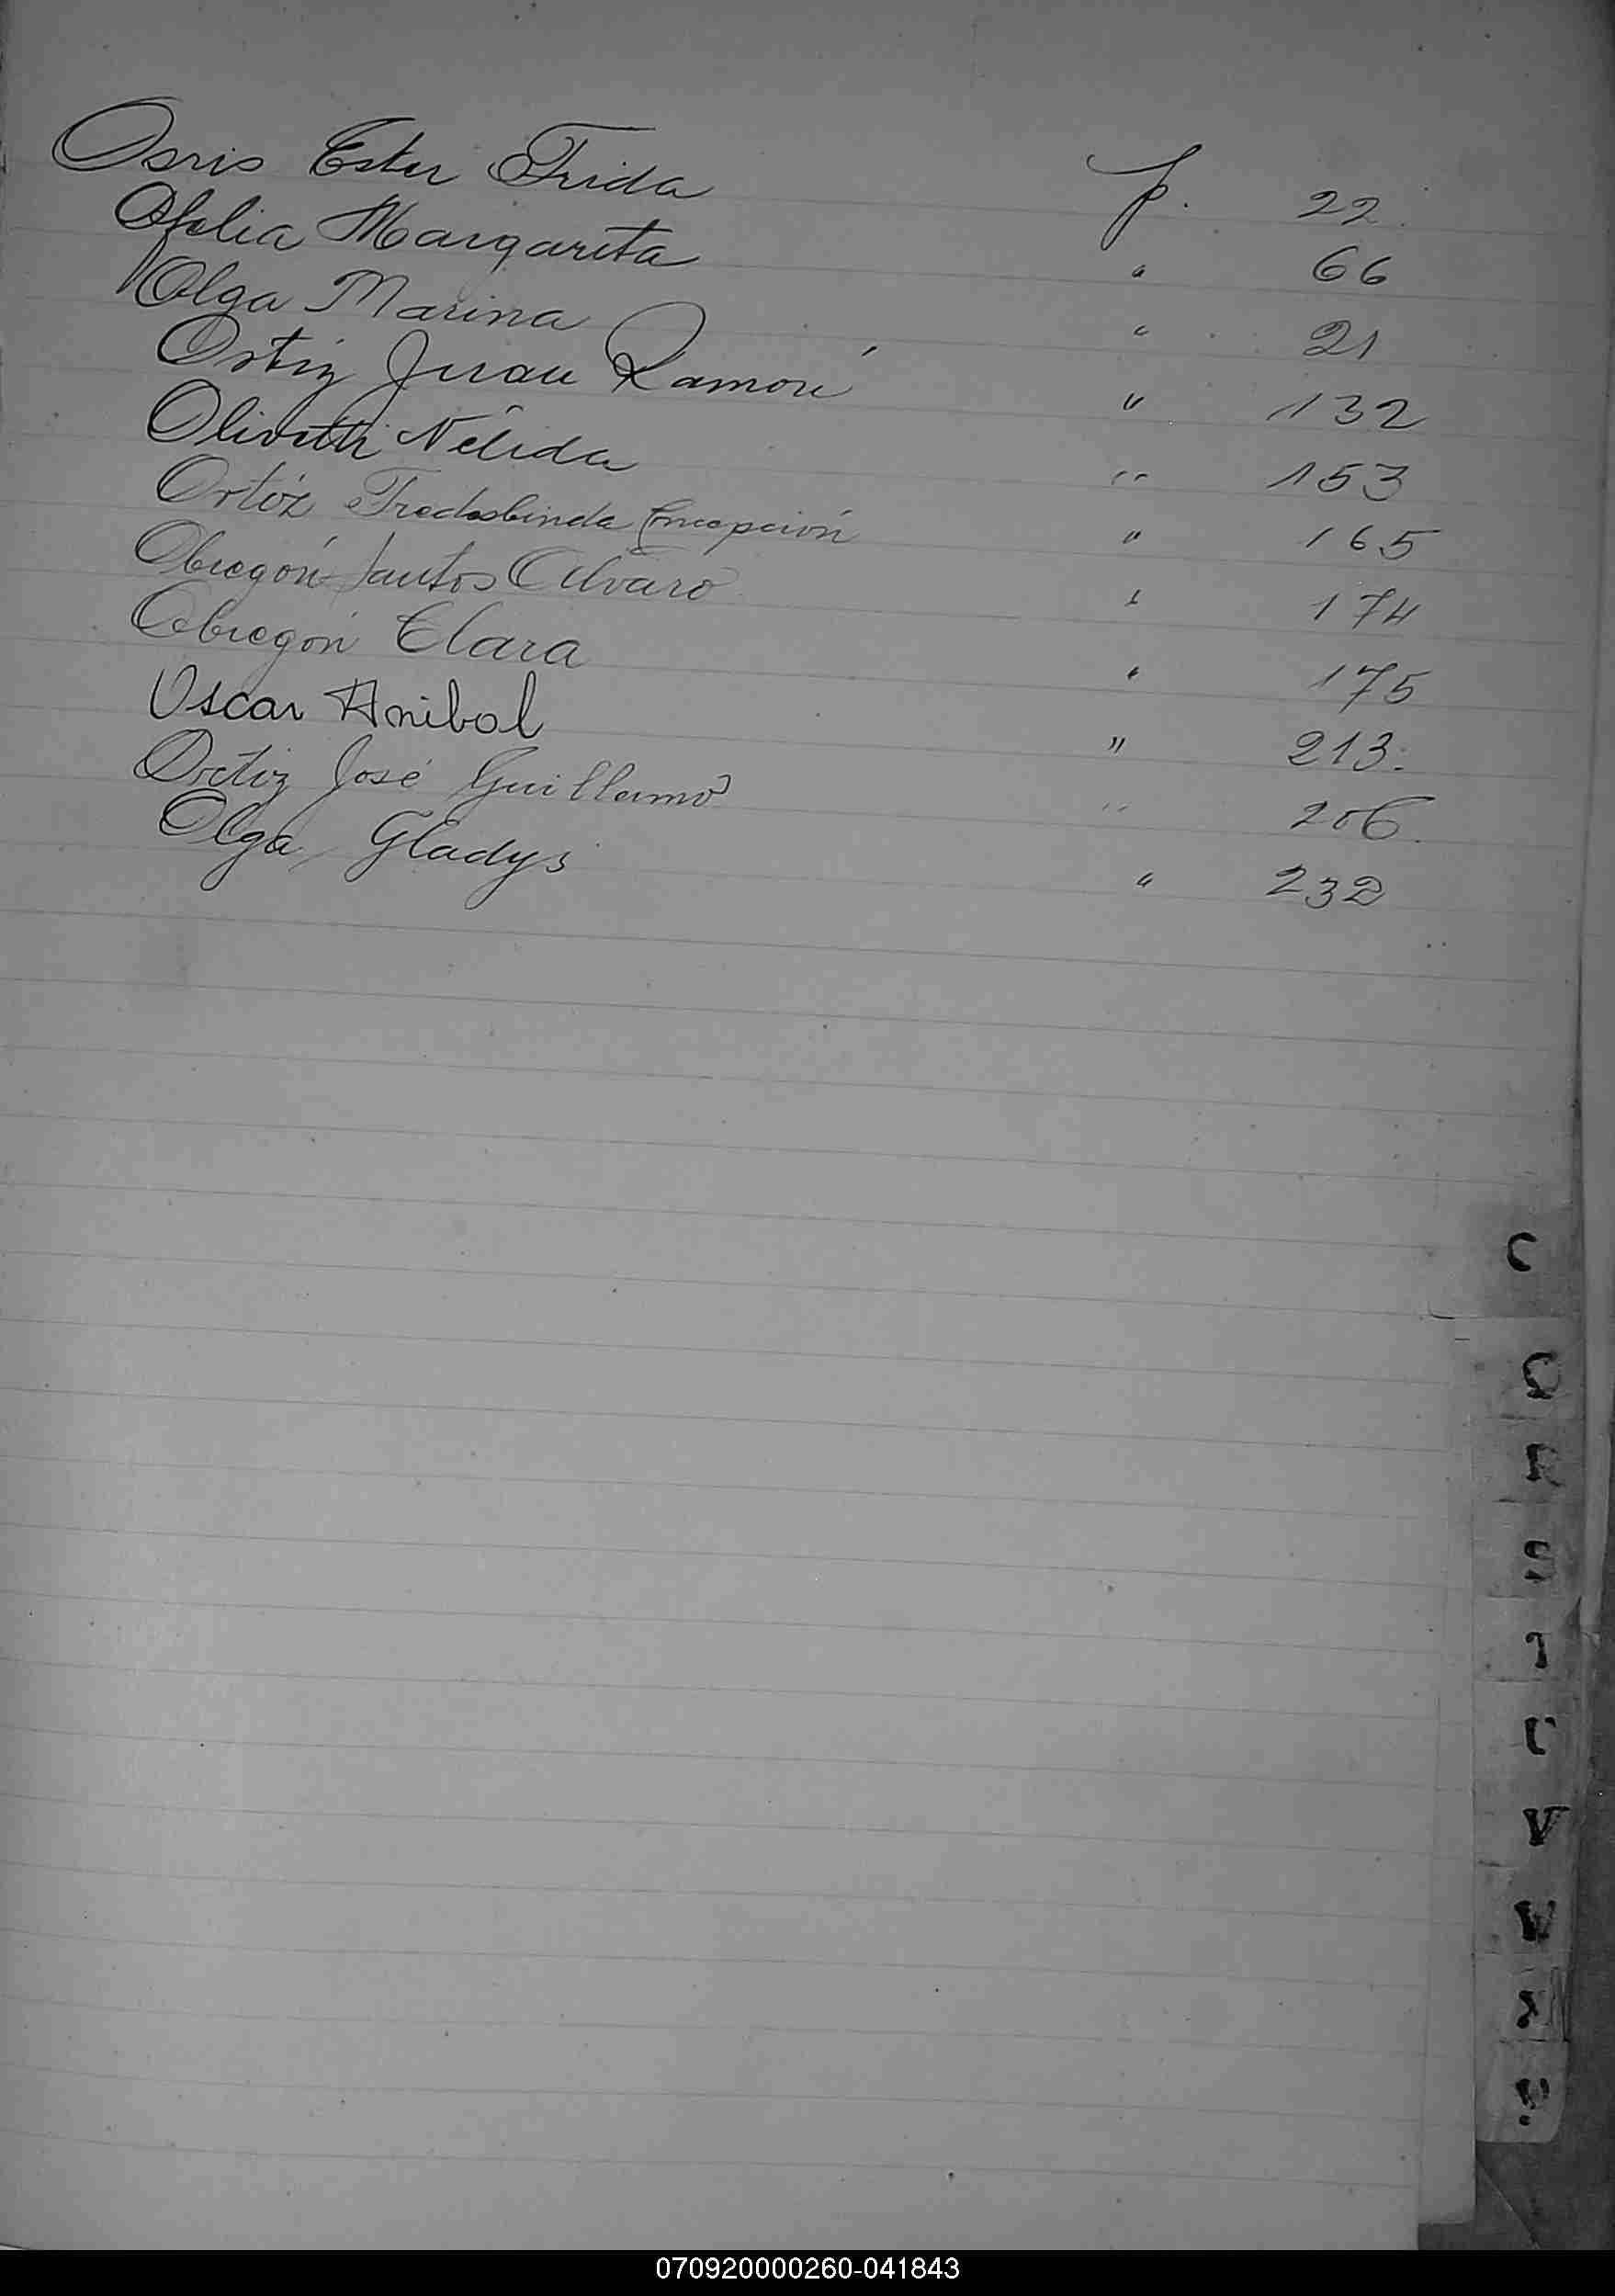 Osris Ester Frida p. 22.
Ofelia Margarita " 66
Olga Marina " 21
Ortiz Juan Ramón " 132
Olivetti Nélida " 153
Ortiz Concepción " 165
Obregón Santos Alvaro " 174
Obregón Clara " 175
Oscar Anibal " 213.
Ortiz José Guillermo " 206.
Olga Gladys " 232
V
070920000260-041843